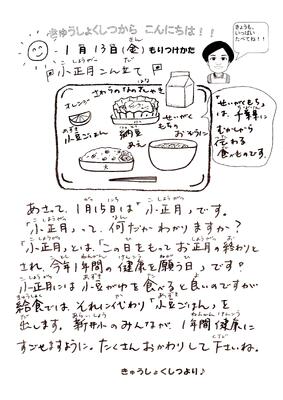 きゅうしょくしつから こんにちは！！
きょうも、
いっぱい
たべてね！！
1月13日(金) もりつけかた
小正月こんだて
さわらのなのはなやき
オレンジ
小豆ごはん
納豆
あえ
せいがく
もちの
おぞうに
大
「せいがくもち」
は、千葉県に
むかしから
伝わる
食べものです。
あさって、1月15日は「小正月」です。
「小正月」って、何だかわかりますか？
「小正月」とは、「この日をもってお正月の終わりと
され、今年1年間の健康を願う日」です？
小正月には小豆がゆを食べると良いのですが
給食では、それに代わり「小豆ごはん」を
出します。新井小のみんなが、1年間健康に
すごせますように。たくさんおかわりして下さいね。
きゅうしょくしつより♪